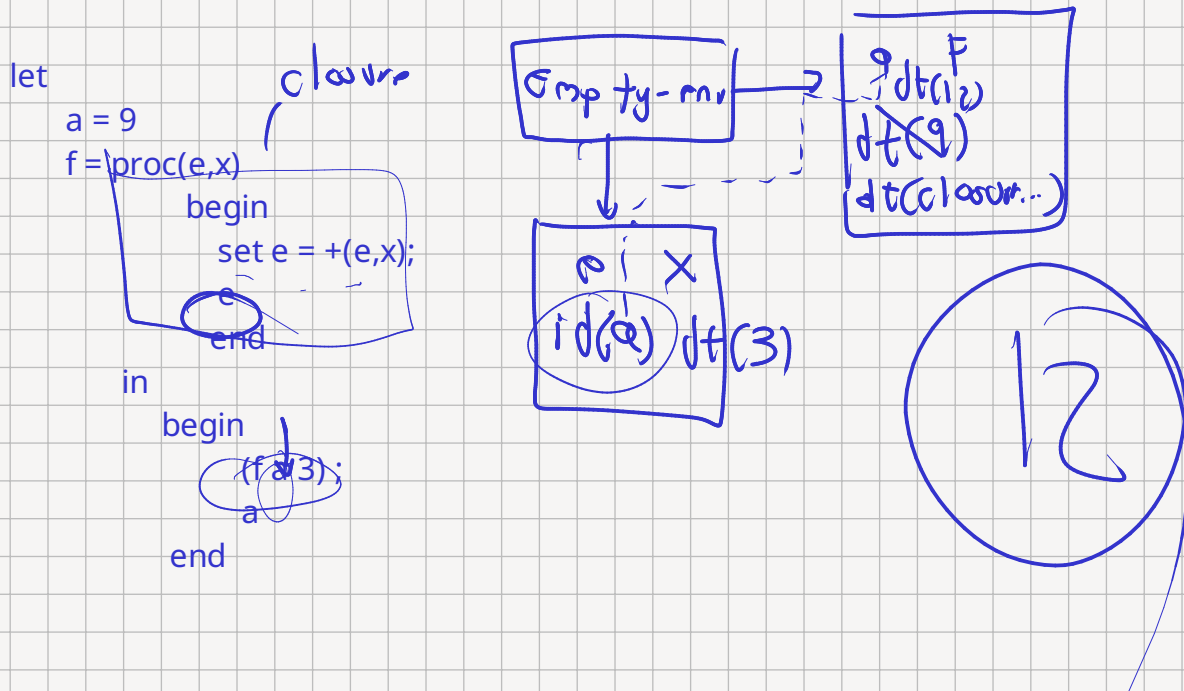 let
a = 9
f = proc(e,x)
begin
set e = +(e,x);
e
end
in
begin
(f a 3) ;
a
end
closure
Empty-env
a F
dt(12)
dt(9)
dt(closur...)
e x
id(a) dt(3)
12